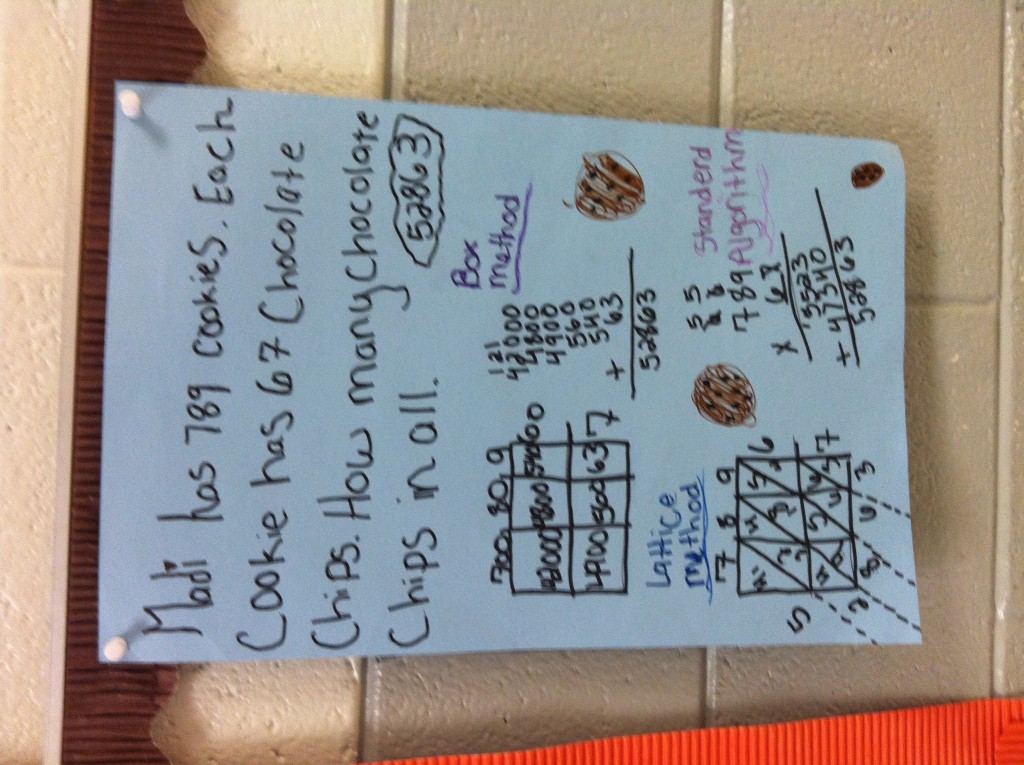 Madi has 789 cookies. Each
Cookie has 67 Chocolate
Chips. How many Chocolate
Chips in all.
52863
Box
method
700 80 9
42000 4800 540 60
4900 560 63 7
121
42000
4800
4900
560
540
+ 63
52863
Lattice
method
7 8 9
6
7
5 2 8 6 3
Standerd
Algorithm
5 5
6 6
789
x 67
5523
+ 47340
52863